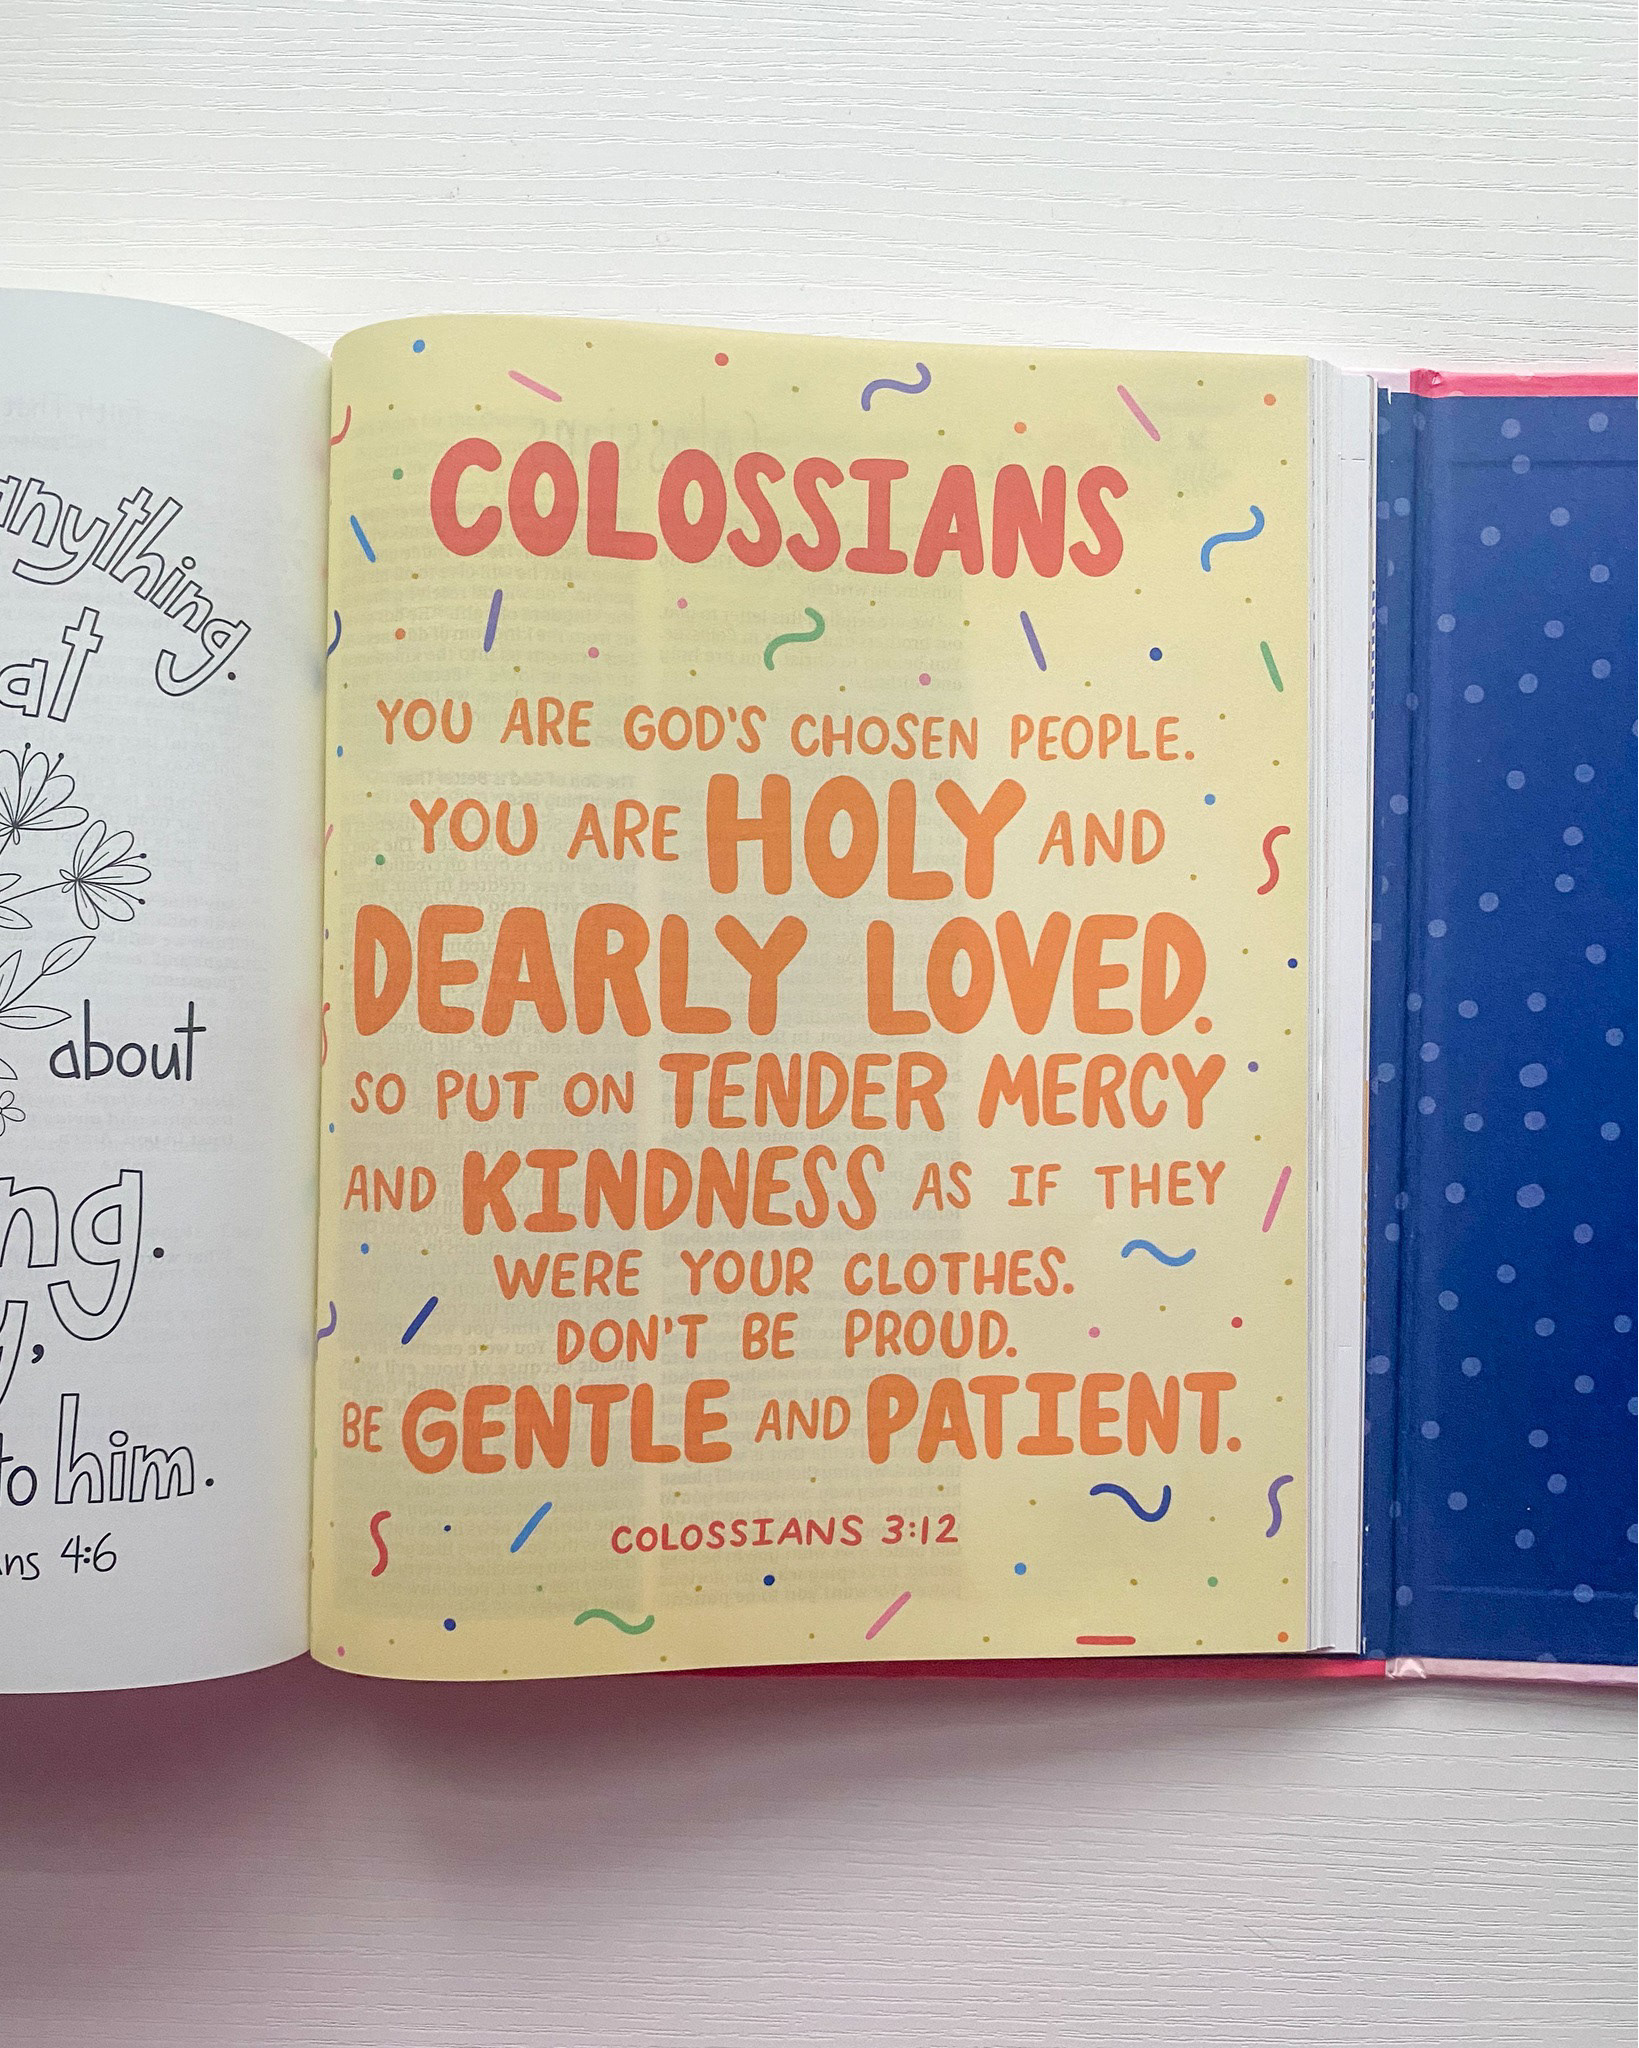 anything.
at
about
to him.
4:6
COLOSSIANS
YOU ARE GOD'S CHOSEN PEOPLE.
YOU ARE HOLY AND
DEARLY LOVED.
SO PUT ON TENDER MERCY
AND KINDNESS AS IF THEY
WERE YOUR CLOTHES.
DON'T BE PROUD.
BE GENTLE AND PATIENT.
COLOSSIANS 3:12